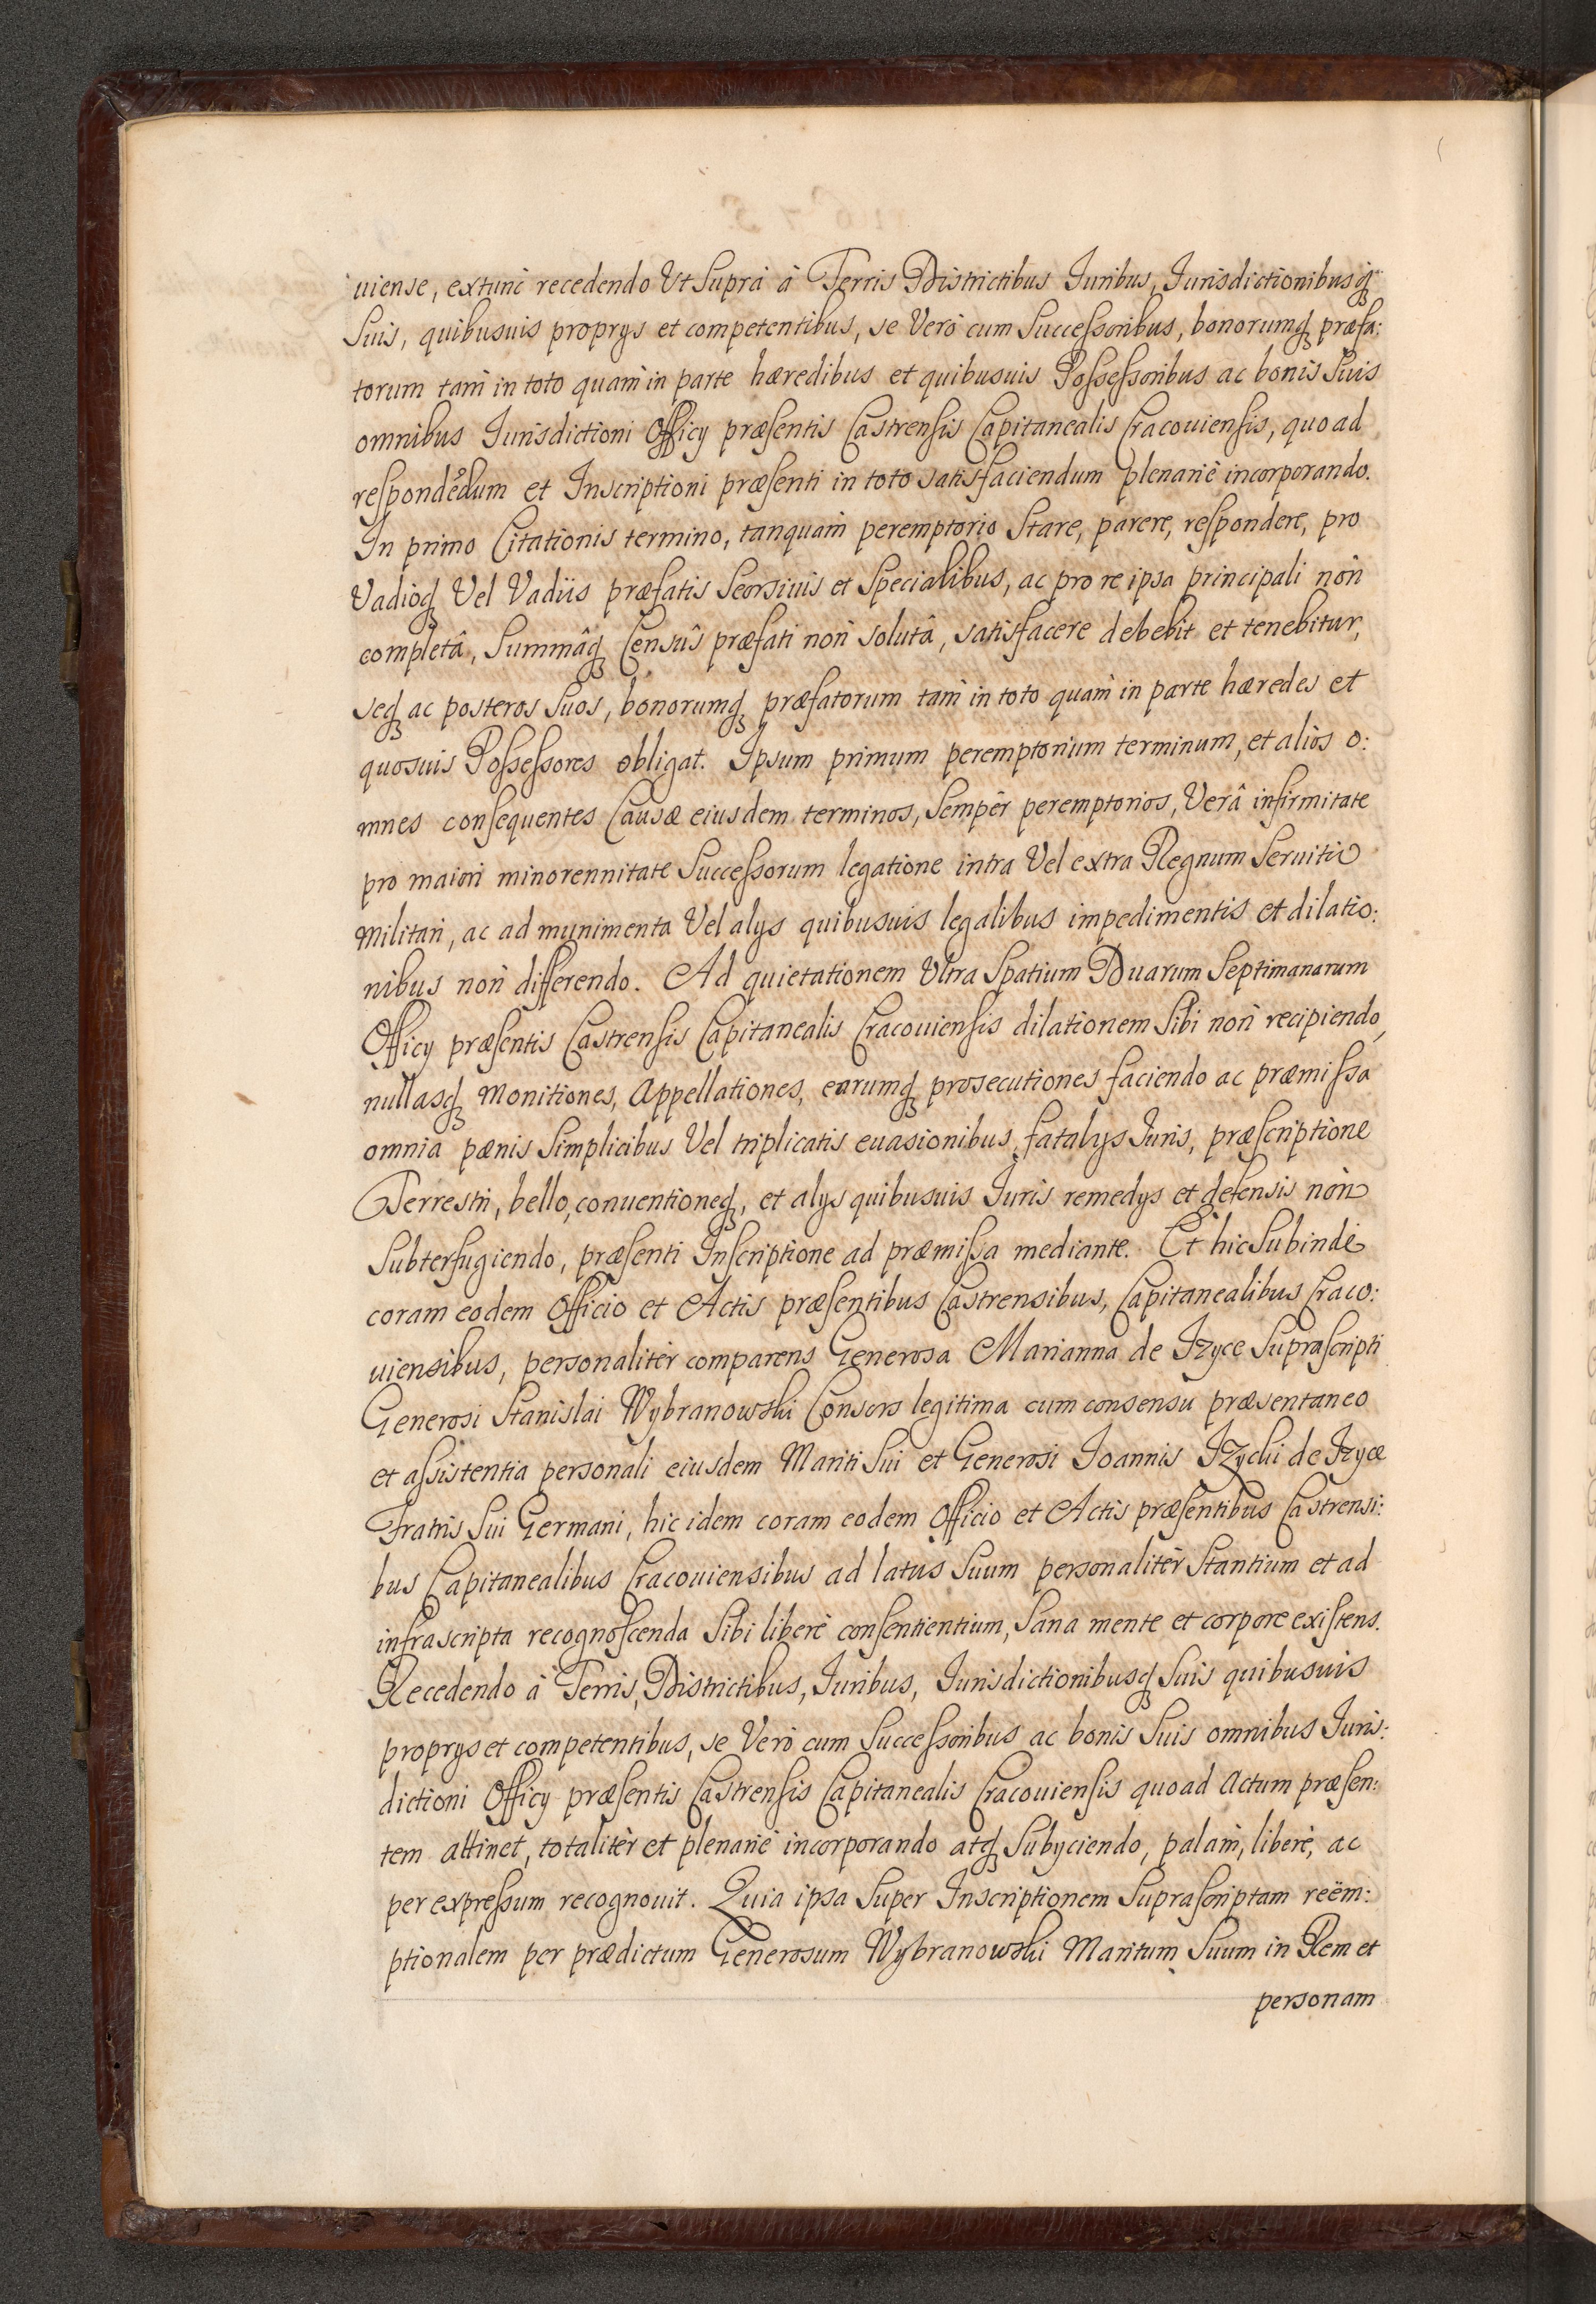 uiense, extunc recedendo Vt Supra à Terris Districtibus Iuribus, Iurisdictionibusq́
Suis, quibusuis proprys et competentibus, se Vero cum Successoribus, bonorumq́ præfa:
torum tam in toto quam in parte hæredibus et quibusuis Possessoribus ac bonis Suis
omnibus Iurisdictioni Officy præsentis Castrensis Capitanealis Cracouiensis, quo ad
respondédum et Inscriptioni præsenti in toto satisfaciendum plenarie incorporando.
In primo Citationis termino, tanquam peremptorio Stare, parere, respondere, pro
Vadioq́ Vel Vadiis præfatis Seorsiuis et Specialibus, ac pro re ipsa principali non
completâ, Summâq́ Censûs præfati non solutâ, satisfacere debebit et tenebitur,
seq́ ac posteros Suos, bonorumq́ præfatorum tam in toto quam in parte hæredes et
quosuis Possessores obligat. Ipsum primum peremptorium terminum, et alios o:
mnes consequentes Causæ eiusdem terminos, Semper peremptorios, Verâ infirmitate
pro maiori minorennitate Successorum legatione intra Vel extra Regnum Seruitio
militari, ac ad munimenta Vel alys quibusuis legalibus impedimentis et dilatio:
nibus non differendo. Ad quietationem Vltra Spatium Duarum Septimanarum
Officy præsentis Castrensis Capitanealis Cracouiensis dilationem Sibi non recipiendo,
nullasq́ Monitiones, Appellationes, earumq́ prosecutiones faciendo ac præmissa
omnia pænis Simplicibus Vel triplicatis euasionibus, fatalys Iuris, præscriptione
Terrestri, bello, conuentioneq́, et alys quibusuis Iuris remedys et defensis non
Subterfugiendo, præsenti Inscriptione ad præmissa mediante. Et hic Subinde
coram eodem Officio et Actis præsentibus Castrensibus, Capitanealibus Craco:
uiensibus, personaliter comparens Generosa Marianna de Izyce Suprascripti
Generosi Stanislai Wybranowski Consors legitima cum consensu præsentaneo
et assistentia personali eiusdem Mariti Sui et Generosi Ioannis Izycki de Izyce
Fratris Sui Germani, hic idem coram eodem Officio et Actis præsentibus Castrensi:
bus Capitanealibus Cracouiensibus ad latus Suum personaliter Stantium et ad
infrascripta recognoscenda Sibi libere consentientium, Sana mente et corpore existens.
Recedendo à Terris, Districtibus, Iuribus, Iurisdictionibusq́ Suis quibusuis
proprys et competentibus, se Vero cum Successoribus ac bonis Suis omnibus Iuris:
dictioni Officy præsentis Castrensis Capitanealis Cracouiensis quo ad Actum præsen:
tem attinet, totaliter et plenarie incorporando atq́ Subyciendo, palam, libere, ac
per expressum recognouit. Quia ipsa Super Inscriptionem Suprascriptam reëm:
ptionalem per prædictum Generosum Wybranowski Maritum Suum in Rem et
personam